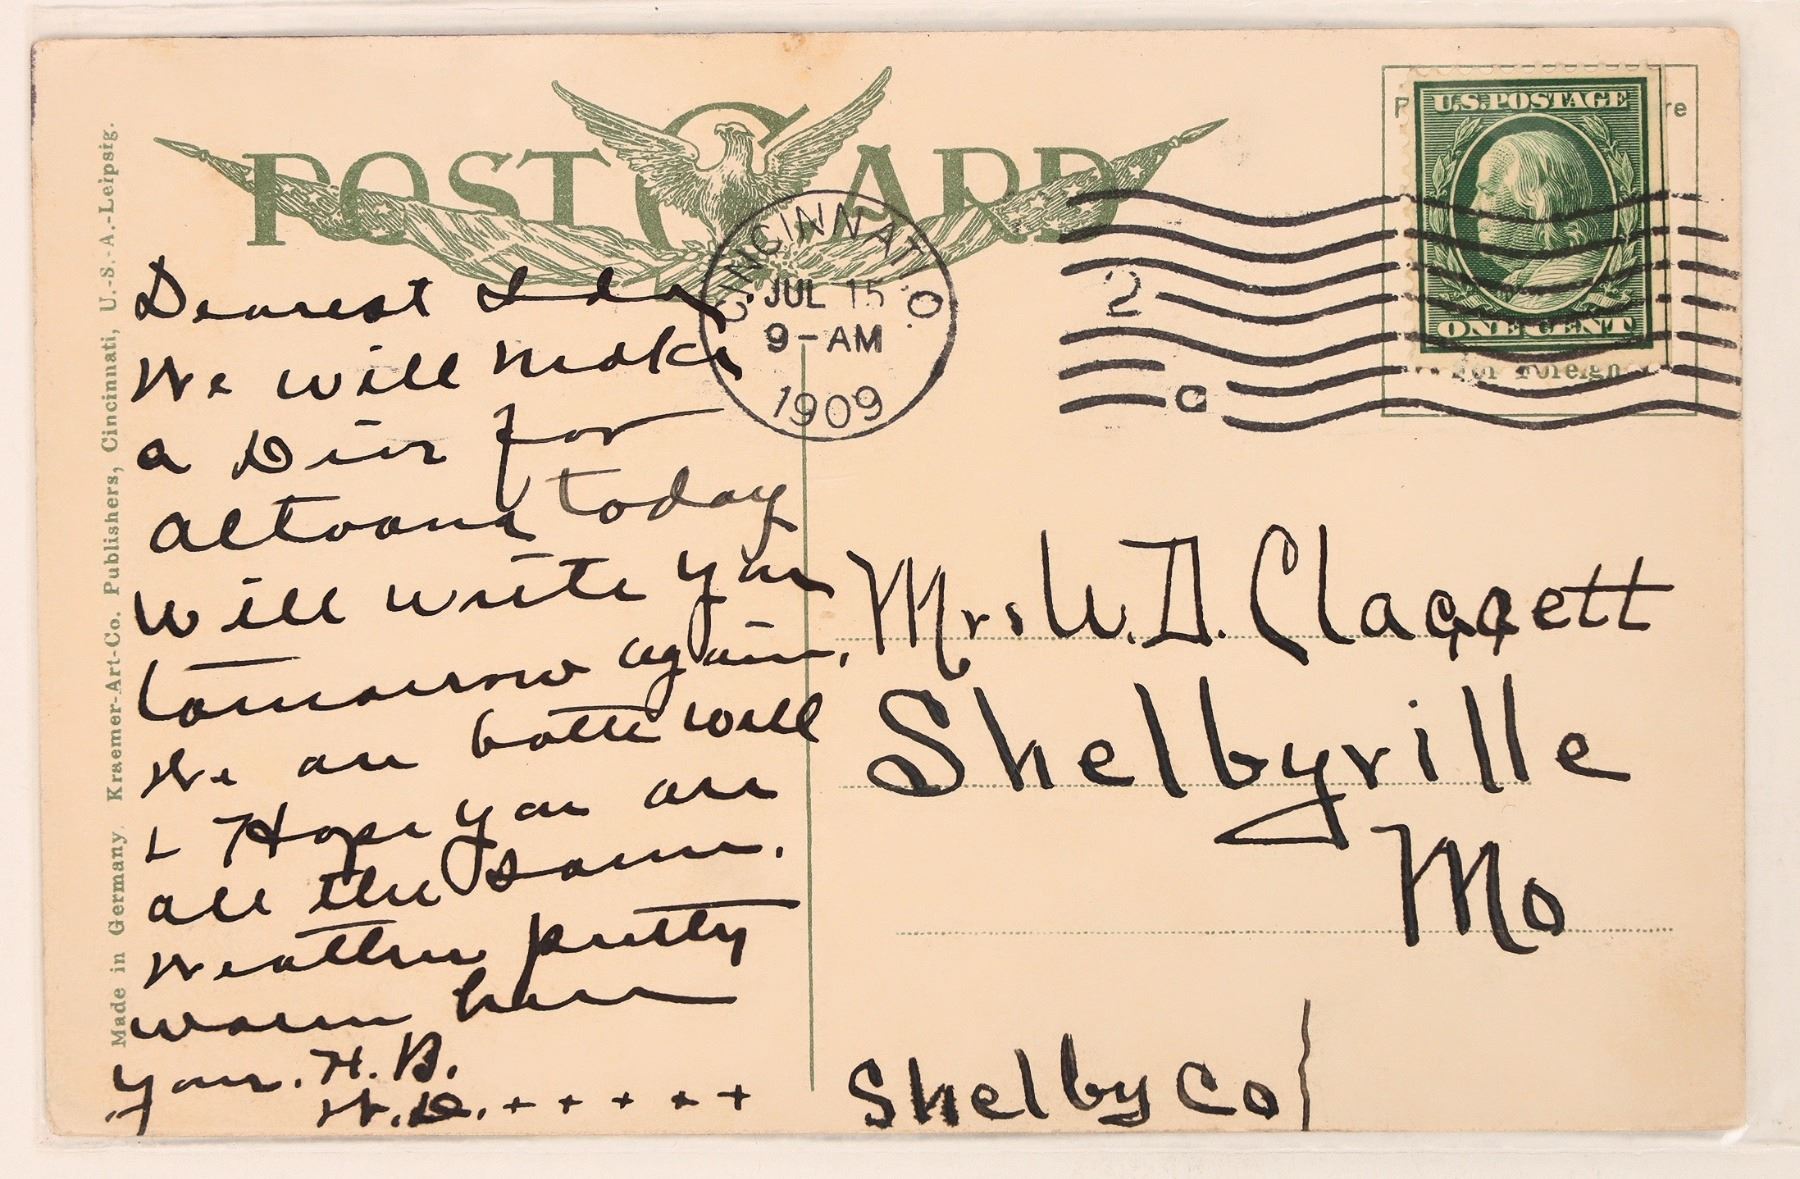 POST CARD
U.S. POSTAGE
ONE CENT
For Foreign
CINCINNATI, O.
JUL 15
9-AM
1909
2
C
Dearest Ida,
We will make
a Dive for
Altoona today
Will write you
tomorrow again.
We are both well
& Hope you are
all the same.
Weather pretty
warm here
Your. H. B.
W. D. + + + + +
Mrs W. D. Claggett
Shelbyville
Mo
Shelby Co
Made in Germany. Kraemer-Art-Co. Publishers, Cincinnati, U.-S.-A.-Leipsig.